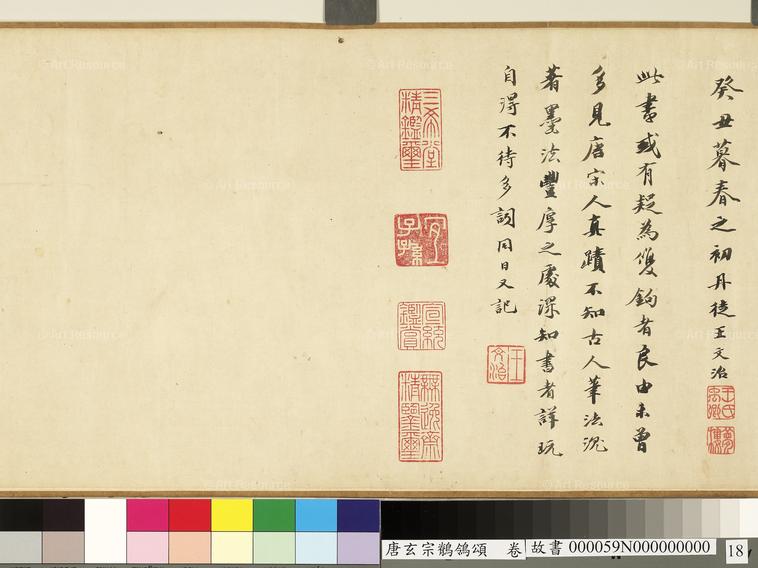 癸丑暮春之初丹徒王文治
王氏禹卿
夢樓
此書或有疑為雙鉤者良由未曾
多見唐宋人真蹟不知古人筆法沉
著墨法豐厚之處深知書者詳玩
自得不待多詞同日又記
王文治
三希堂精鑑璽
宜子孫
宣統鑑賞
無逸齋精鑒璽
唐玄宗鶺鴒頌 卷 故書 000059N000000000 18
© Art Resource